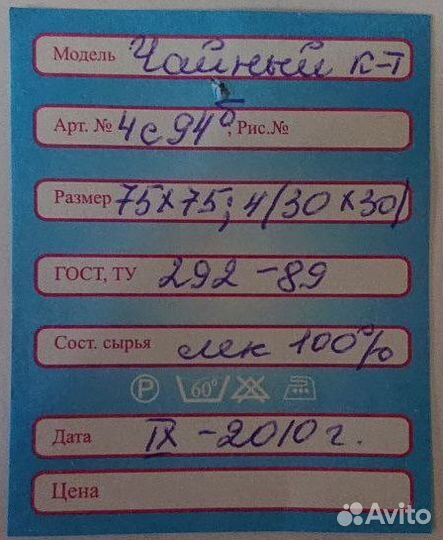 Модель Чайный к-т
Арт. № 4с94, Рис.№
Размер 75х75; 4(30х30)
ГОСТ, ТУ 292-89
Сост. сырья лек 100%
P 60°
Дата IX-2010г.
Цена
Avito